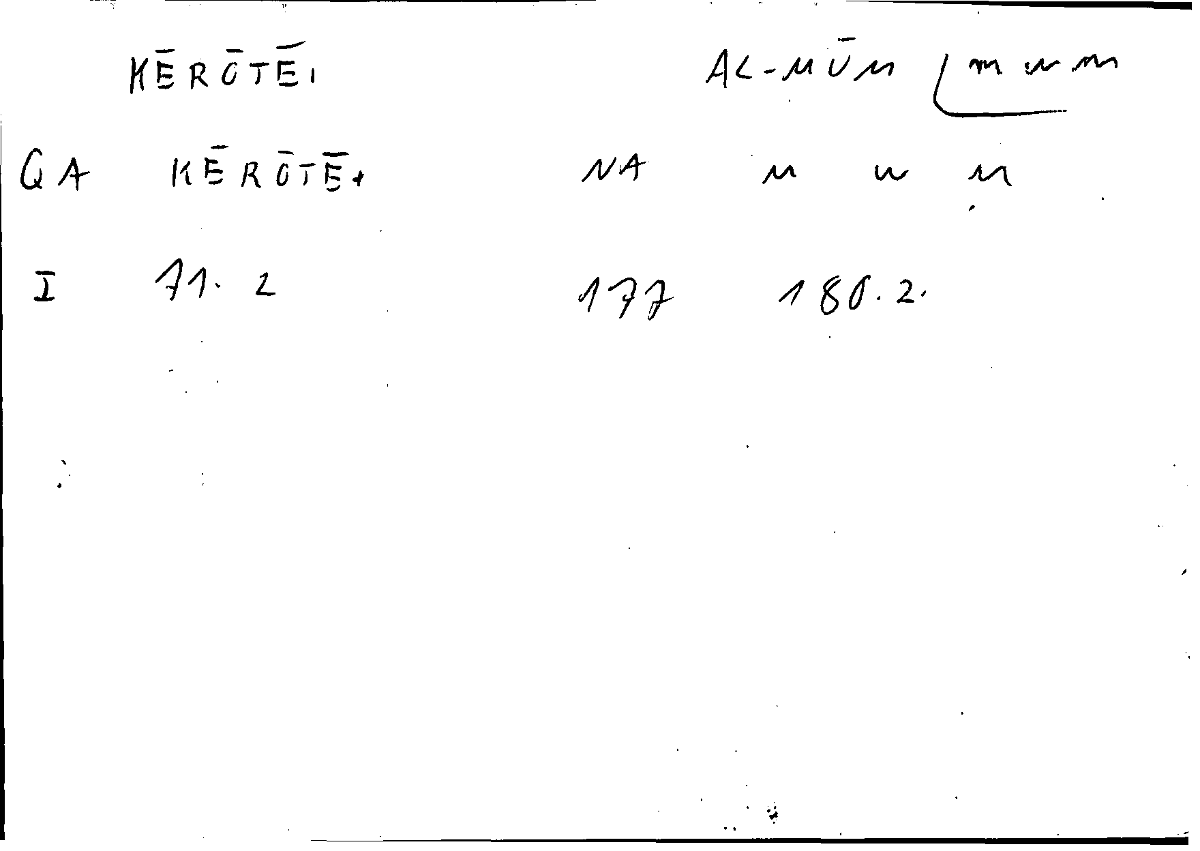 KĒRŌTĒ, AL-MŪM mwm
QA KĒRŌTĒ+ NA m w m
I 71. 2 177 180. 2.